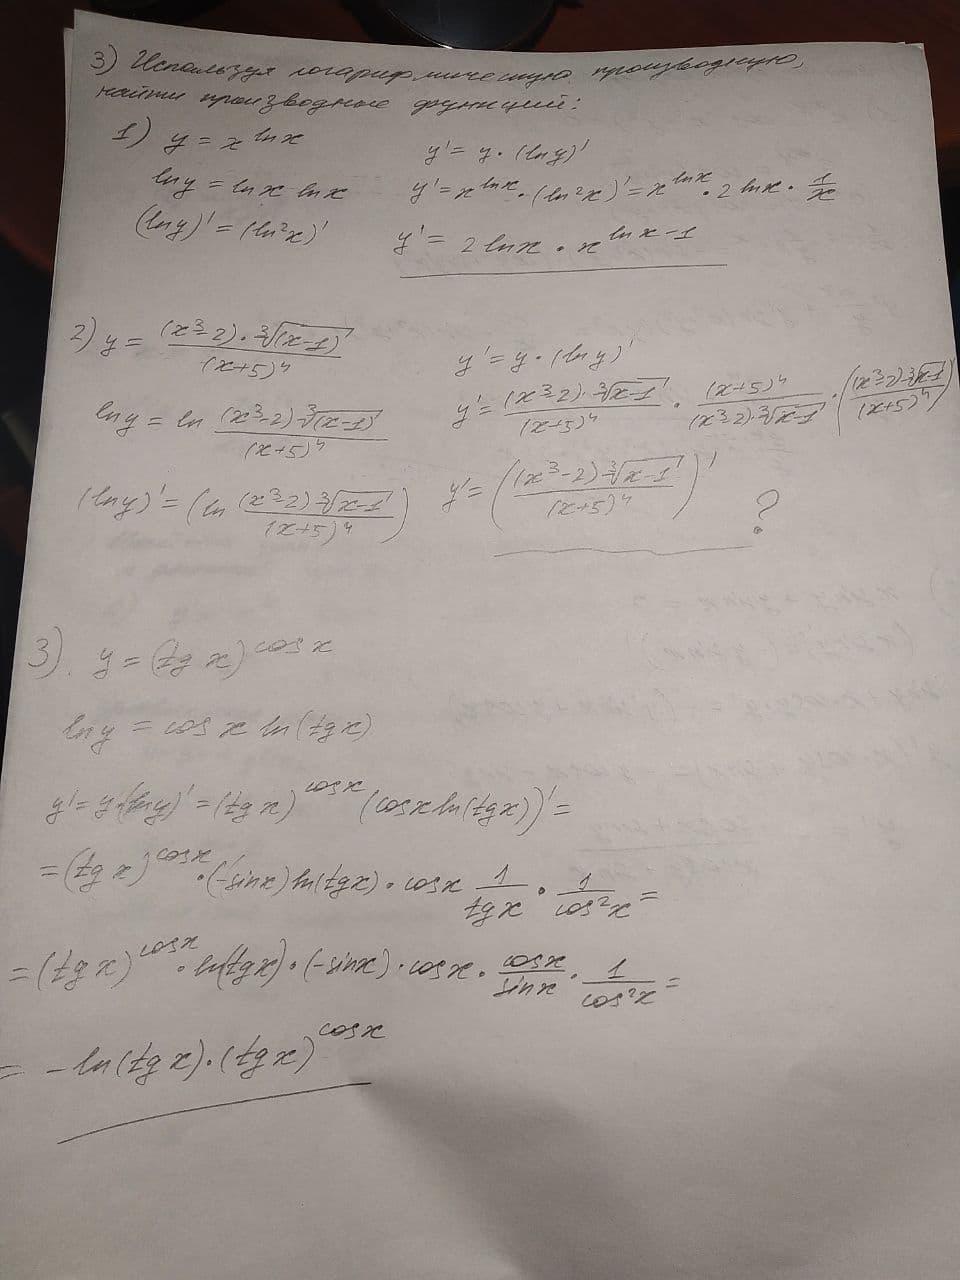 3) Используя логарифмическую производную,
найти производные функций:
1) y = x^{ln x}
ln y = ln x ln x
(ln y)' = (ln²x)'
y' = y · (ln y)'
y' = x^{ln x} · (ln²x)' = x^{ln x} · 2 ln x · 1/x
y' = 2 ln x · x^{ln x - 1}
2) y = (x³-2) · ∛(x-1) / (x+5)⁴
ln y = ln (x³-2) ∛(x-1) / (x+5)⁴
(ln y)' = (ln (x³-2) ∛x-1 / (x+5)⁴)
y' = y · (ln y)'
y' = (x³-2) · ∛x-1 / (x+5)⁴ · (x+5)⁴ / (x³-2) · ∛x-1 · ((x³-2) ∛x-1 / (x+5)⁴)'
y' = ((x³-2) ∛x-1 / (x+5)⁴)' ?
3). y = (tg x)^{cos x}
ln y = cos x ln(tg x)
y' = y · (ln y)' = (tg x)^{cos x} (cos x ln(tg x))' =
= (tg x)^{cos x} · (-sin x) ln(tg x) · cos x 1/tg x · 1/cos²x =
= (tg x)^{cos x} · ln(tg x) · (-sin x) · cos x · cos x/sin x · 1/cos²x =
= - ln(tg x) · (tg x)^{cos x}